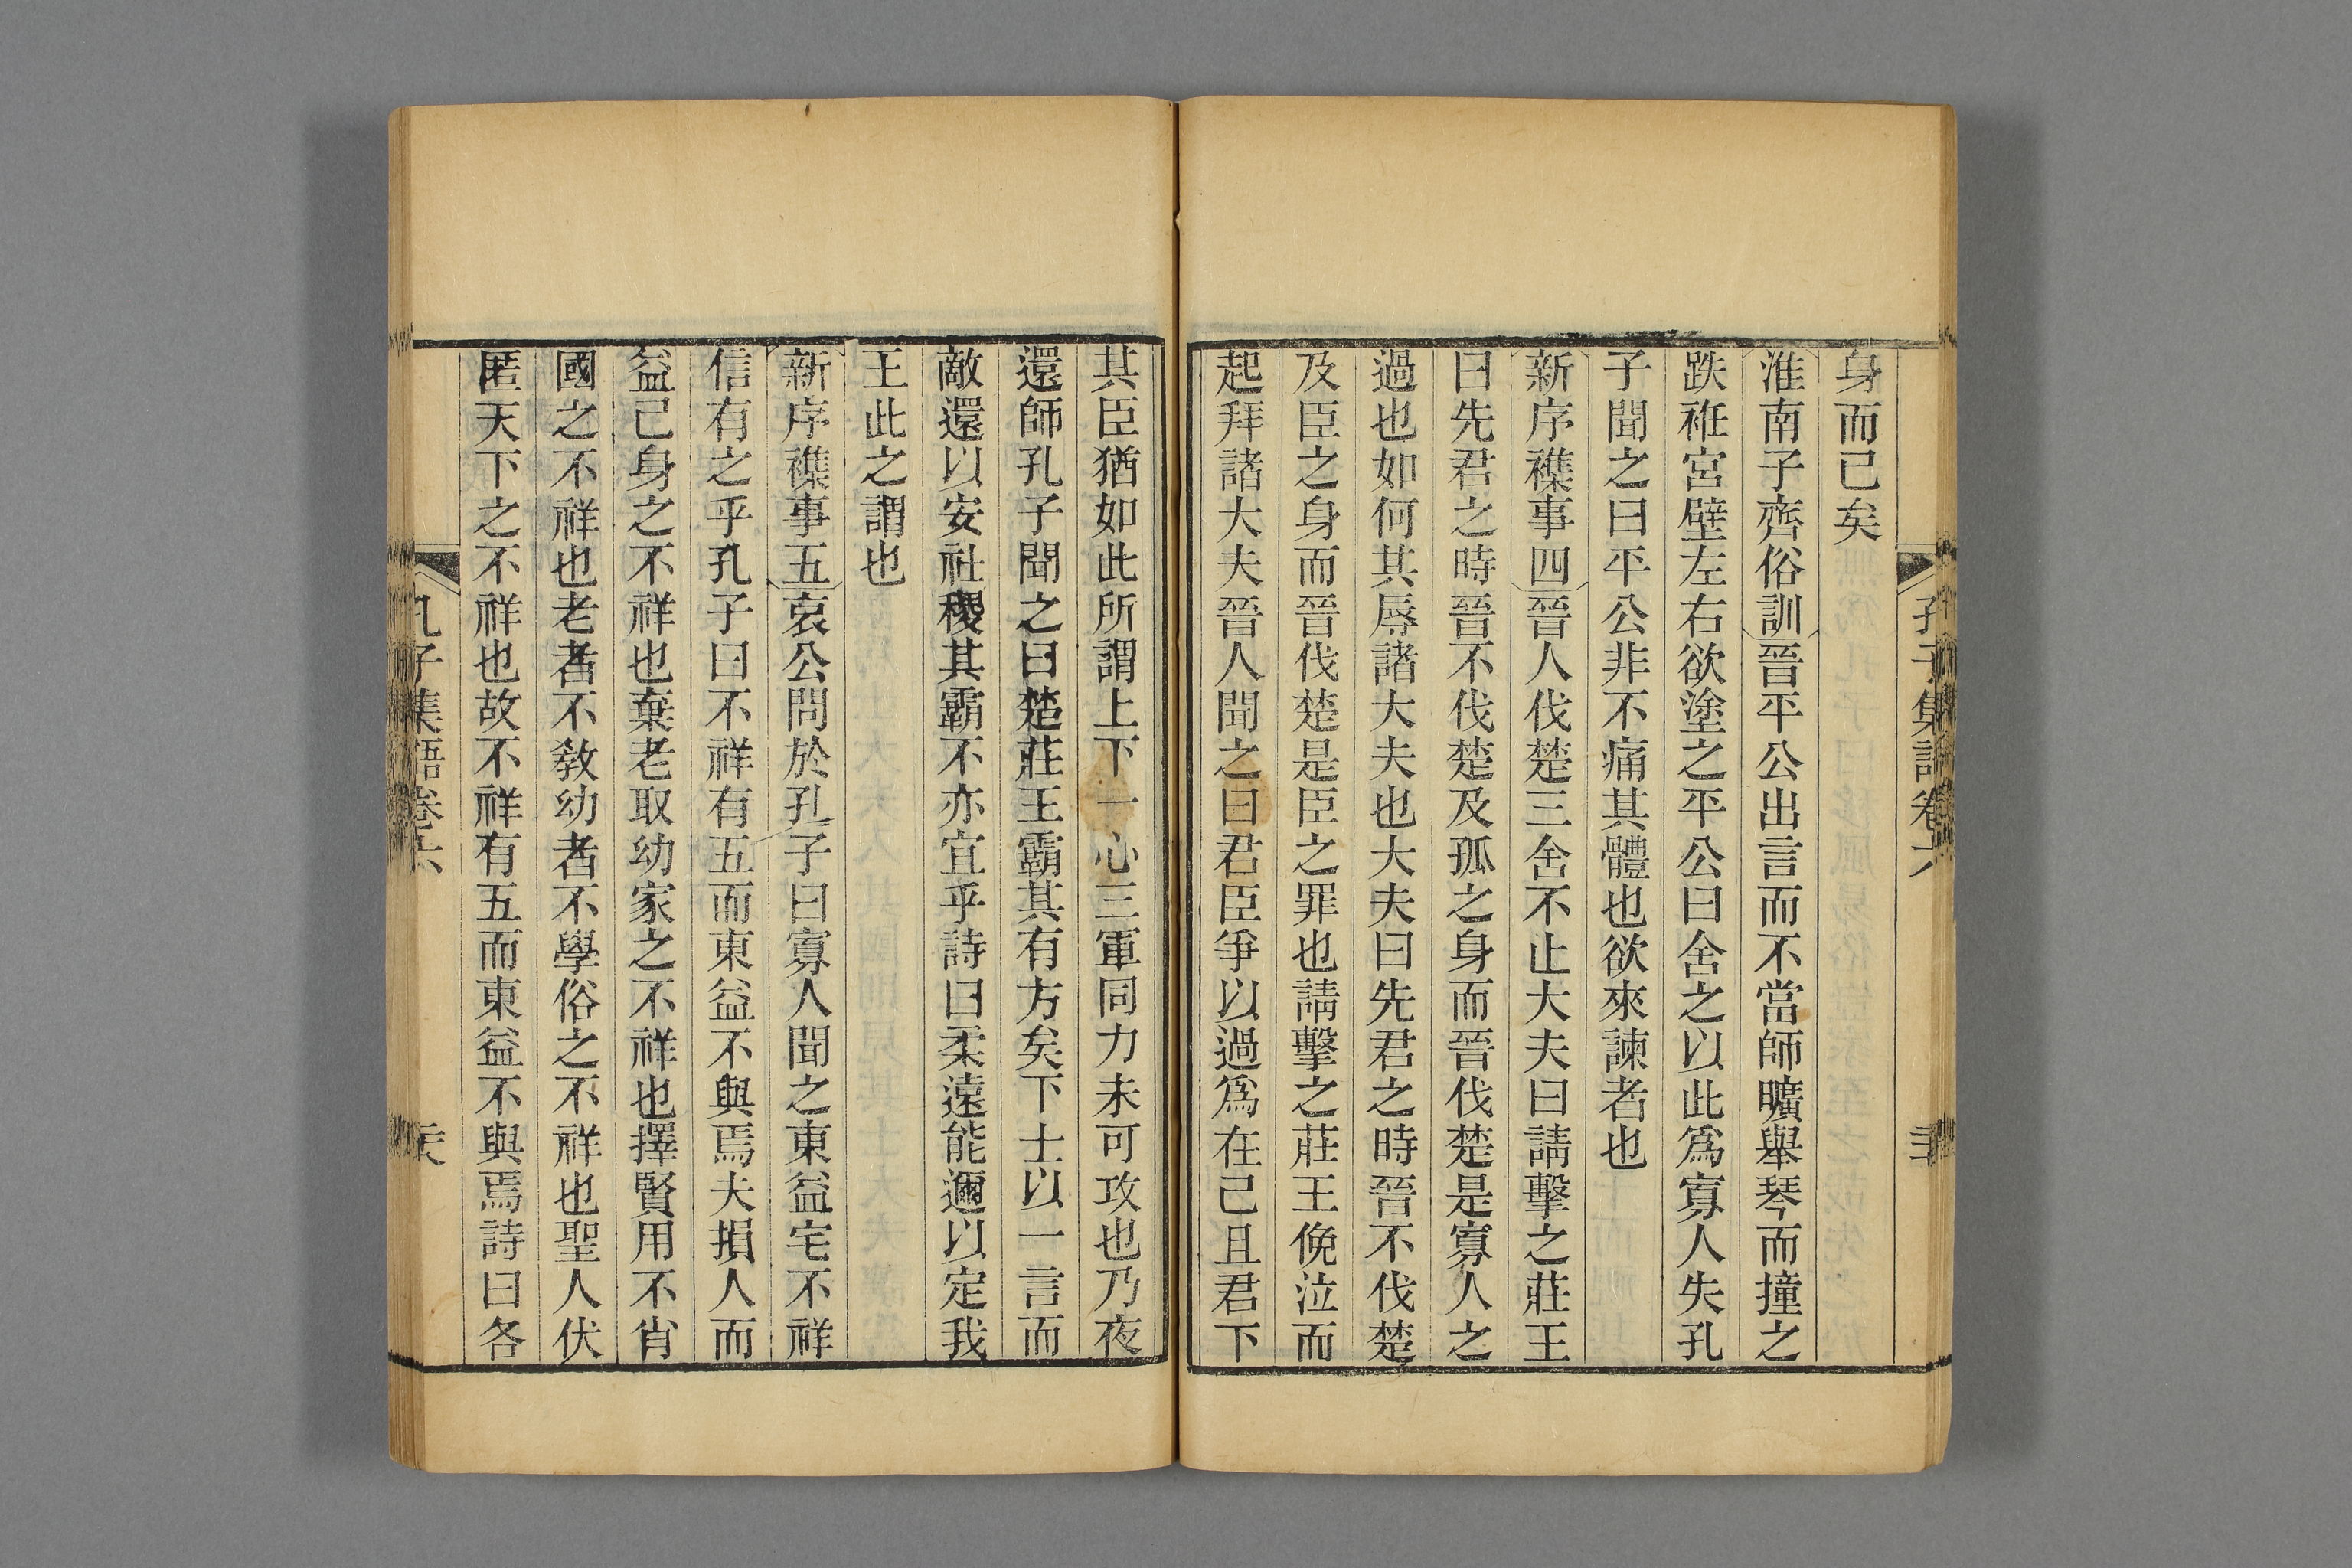 孔子集語卷六
身而已矣
淮南子齊俗訓晉平公出言而不當師曠舉琴而撞之
跌衽宮壁左右欲塗之平公曰舍之以此爲寡人失孔
子聞之曰平公非不痛其體也欲來諫者也
新序襍事四晉人伐楚三舍不止大夫曰請擊之莊王
曰先君之時晉不伐楚及孤之身而晉伐楚是寡人之
過也如何其辱諸大夫也大夫曰先君之時晉不伐楚
及臣之身而晉伐楚是臣之罪也請擊之莊王俛泣而
起拜諸大夫晉人聞之曰君臣爭以過爲在己且君下
其臣猶如此所謂上下一心三軍同力未可攻也乃夜
還師孔子聞之曰楚莊王霸其有方矣下士以一言而
敵還以安社稷其霸不亦宜乎詩曰柔遠能邇以定我
王此之謂也
新序襍事五哀公問於孔子曰寡人聞之東益宅不祥
信有之乎孔子曰不祥有五而東益不與焉夫損人而
益己身之不祥也棄老取幼家之不祥也擇賢用不肖
國之不祥也老者不敎幼者不學俗之不祥也聖人伏
匿天下之不祥也故不祥有五而東益不與焉詩曰各
孔子集語卷六